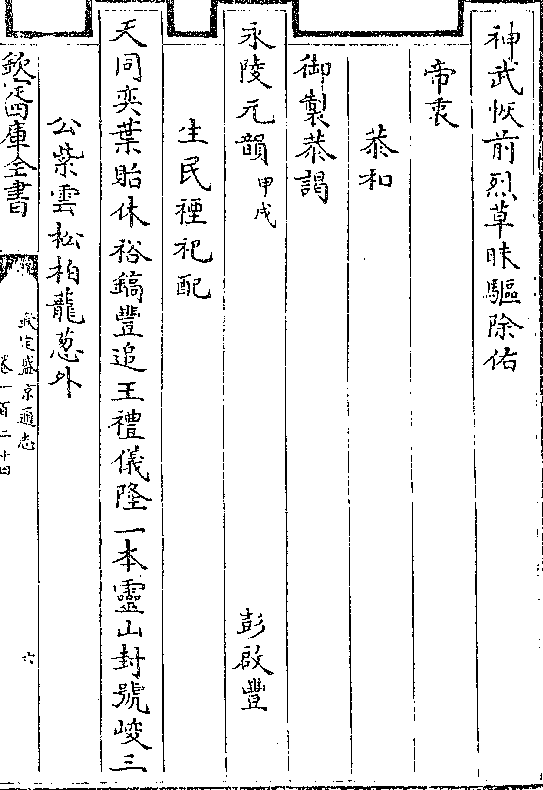 神武恢前烈草昧驅除佑
帝衷
恭和
御製恭謁
永陵元韻 甲戌 彭啟豐
生民禋祀配
天同奕葉貽休裕鎬豐追王禮儀隆一本靈山封號峻三
公紫雲松柏龍蔥外
欽定四庫全書
欽定盛京通志
卷一百二十四
六